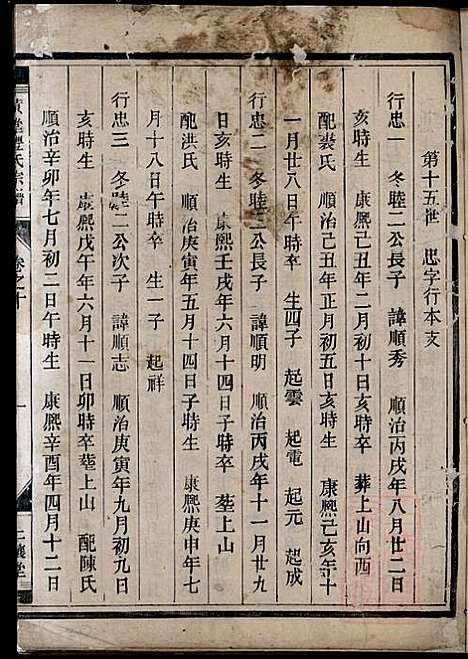 第十五世 忠字行本支
行忠一 冬睦二公長子 諱順秀 順治丙戌年八月廿二日
亥時生 康熙己丑年二月初十日亥時卒 葬上山向西
配裴氏 順治己丑年正月初五日亥時生 康熙己亥年十
一月廿八日午時卒 生四子 起雲 起電 起元 起成
行忠二 冬睦二公長子 諱順明 順治丙戌年十一月廿九
日亥時生 康熙壬戌年六月十四日子時卒 塟上山
配洪氏 順治庚寅年五月十四日子時生 康熙庚申年七
月十八日午時卒 生一子 起祥
行忠三 冬睦二公次子 諱順志 順治庚寅年九月初九日
亥時生 康熙戊午年六月十一日卯時卒塟上山 配陳氏
順治辛卯年七月初二日午時生 康熙辛酉年四月十二日
氏宗譜 卷之十 一